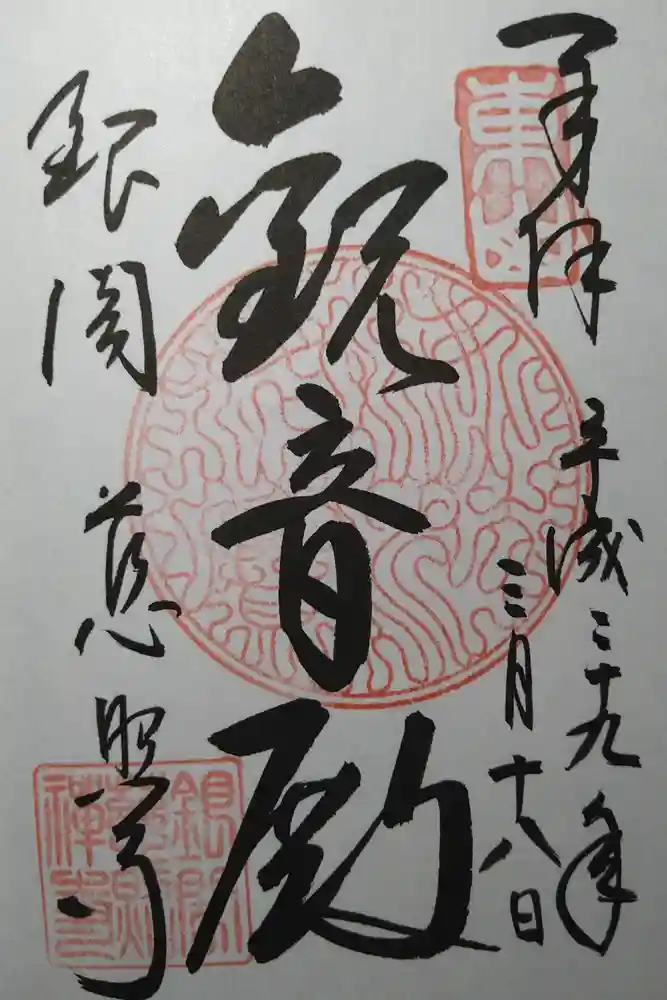 奉拝
東山
平成二十九年
三月十八日
観音殿
銀閣 慈照寺
銀閣
慈照
禅寺